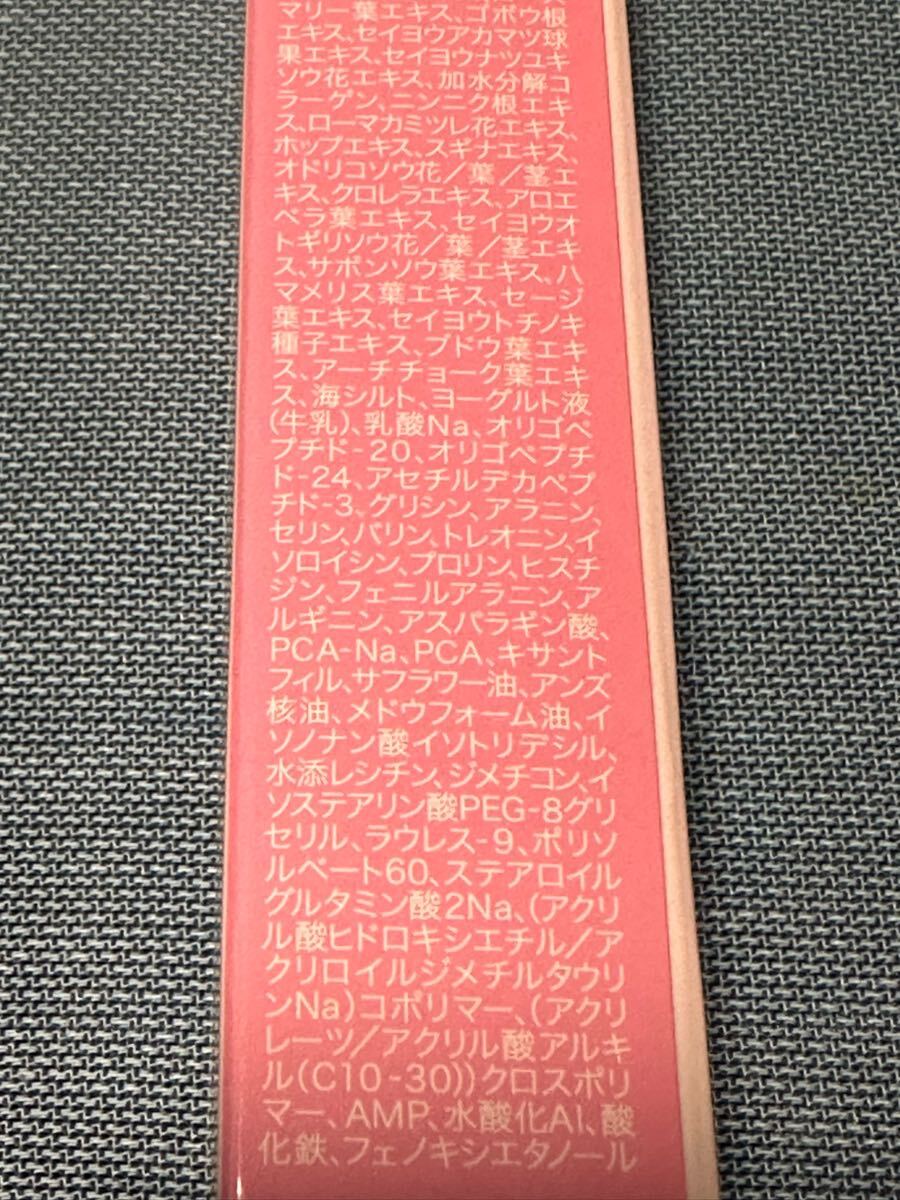 根
マリー葉エキス、ゴボウ
エキス、セイヨウアカマツ球
果エキス、セイヨウナツユキ
ソウ花エキス、加水分解コ
ラーゲン、ニンニク根エキ
ス、ローマカミツレ花エキス、
ホップエキス、スギナエキス、
オドリコソウ花/葉/茎エ
キス、クロレラエキス、アロエ
ベラ葉エキス、セイヨウオ
トギリソウ花/葉/茎エキ
ス、サボンソウ葉エキス、ハ
マメリス葉エキス、セージ
葉エキス、セイヨウトチノキ
種子エキス、ブドウ葉エキ
ス、アーチチョーク葉エキ
ス、海シルト、ヨーグルト液
(牛乳)、乳酸Na、オリゴペ
プチド-20、オリゴペプチ
ド-24、アセチルデカペプ
チド-3、グリシン、アラニン、
セリン、バリン、トレオニン、イ
ソロイシン、プロリン、ヒスチ
ジン、フェニルアラニン、ア
ルギニン、アスパラギン酸、
PCA-Na、PCA、キサント
フィル、サフラワー油、アンズ
核油、メドウフォーム油、イ
ソノナン酸イソトリデシル、
水添レシチン、ジメチコン、イ
ソステアリン酸PEG-8グリ
セリル、ラウレス-9、ポリソ
ルベート60、ステアロイル
グルタミン酸2Na、(アクリ
ル酸ヒドロキシエチル/ア
クリロイルジメチルタウリ
ンNa)コポリマー、(アクリ
レーツ/アクリル酸アルキ
ル(C10-30))クロスポリ
マー、AMP、水酸化Al、酸
化鉄、フェノキシエタノール